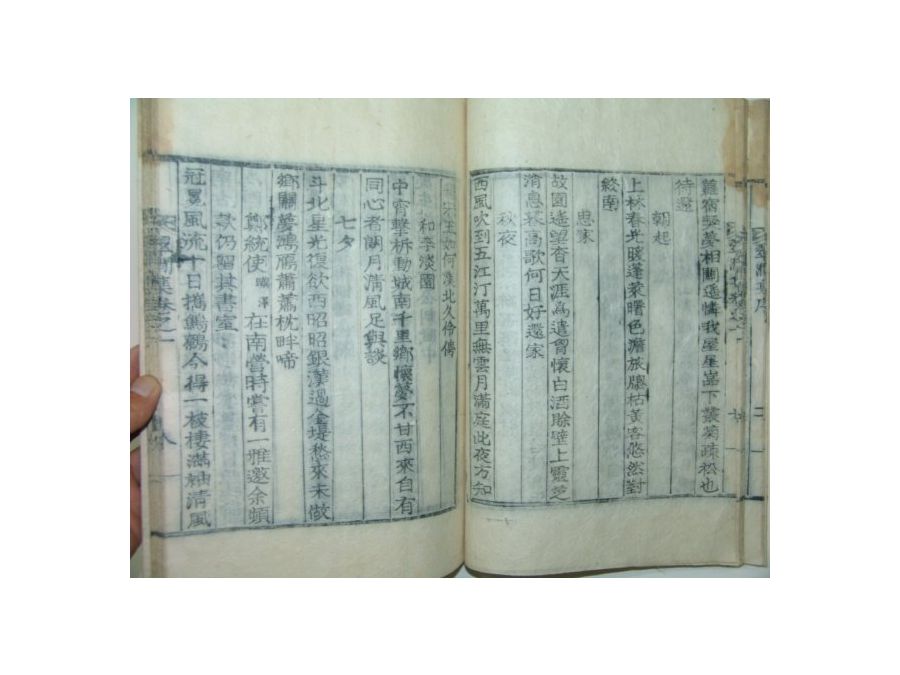 蘿宿驚夢相關遥憐我屋生嵓下叢菊疎松也
待還
朝起
上林春光暖蓬萊曙色澹旅牕枯黃客悠然對
終南
思家
故園遙望杳天涯爲遣覉懷白酒賖壁上靈芝
消息哀高歌何日好還家
秋夜
西風吹到五江汀萬里無雲月滿庭此夜方知
宋玉如何漢北久伶俜
和李淡園
中宵擊柝動城南千里鄉懷夢不甘西來自有
同心者朗月淸風足與談
七夕
斗北星光復欲西昭昭銀漢過金堤愁來未做
鄉關夢鴻鴈蕭蕭枕畔啼
鄭統使 在南營時嘗有一雅邀余頻
仍留其書室
冠冕風流十日攜鷦鷯今得一枝棲滿袖淸風